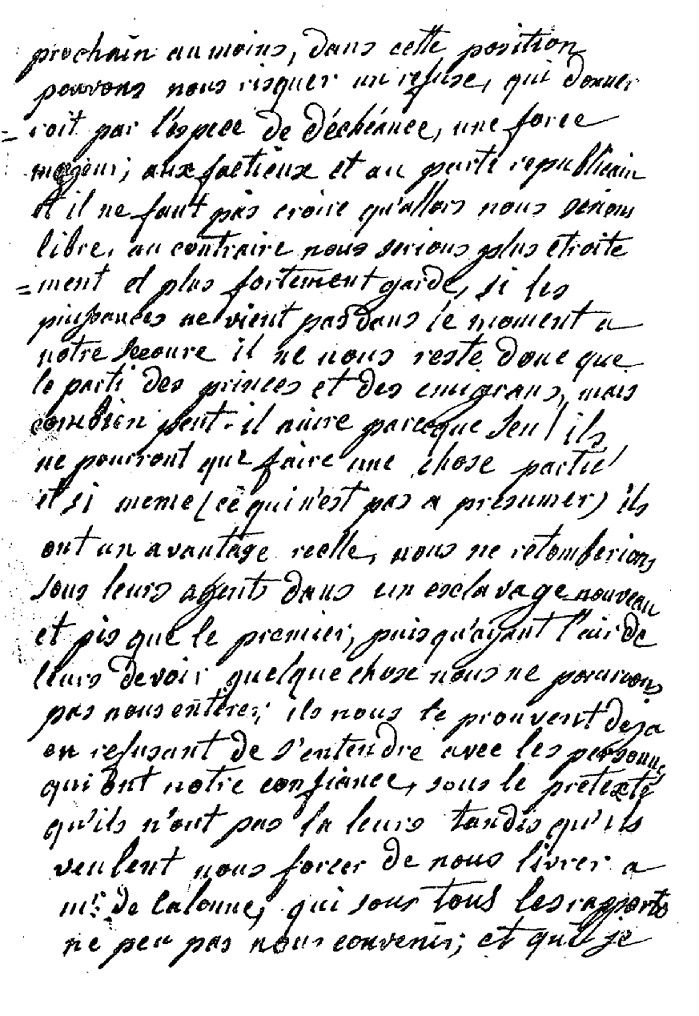 prochain au moins, dans cette position
pouvons nous risquer un refuse, qui donner
= roit par l'éspece de déchéance, une force
majeur; aux factieux et au parti republicain
et il ne faut pas croire qu'allors nous serions
libre, au contraire nous serions plus etroite
= ment et plus fortement garde, si les
puissances ne vient pas dans le moment a
notre secoure il ne nous reste donc que
le parti des princes et des emigrans, mais
combien peut-il nuire parceque seul ils
ne pourront que faire une chose partiel
et si meme (ce qui n'est pas a presumer) ils
ont un avantage reelle, nous ne retomberions
sous leurs agents dans un esclavage nouveau
et pis que le premier, puisqu'ayant l'air de
leurs devoir quelque chose nous ne pourrions
pas nous en tirer; ils nous le prouvent deja
en refusant de s'entendre avec les personnes
qui ont notre confiance, sous le pretexte
qu'ils n'ont pas la leurs tandis qu'ils
veulent nous forcer de nous livrer a
mr. de Calonne, qui sous tous les rapports
ne peu pas nous convenir; et qui je